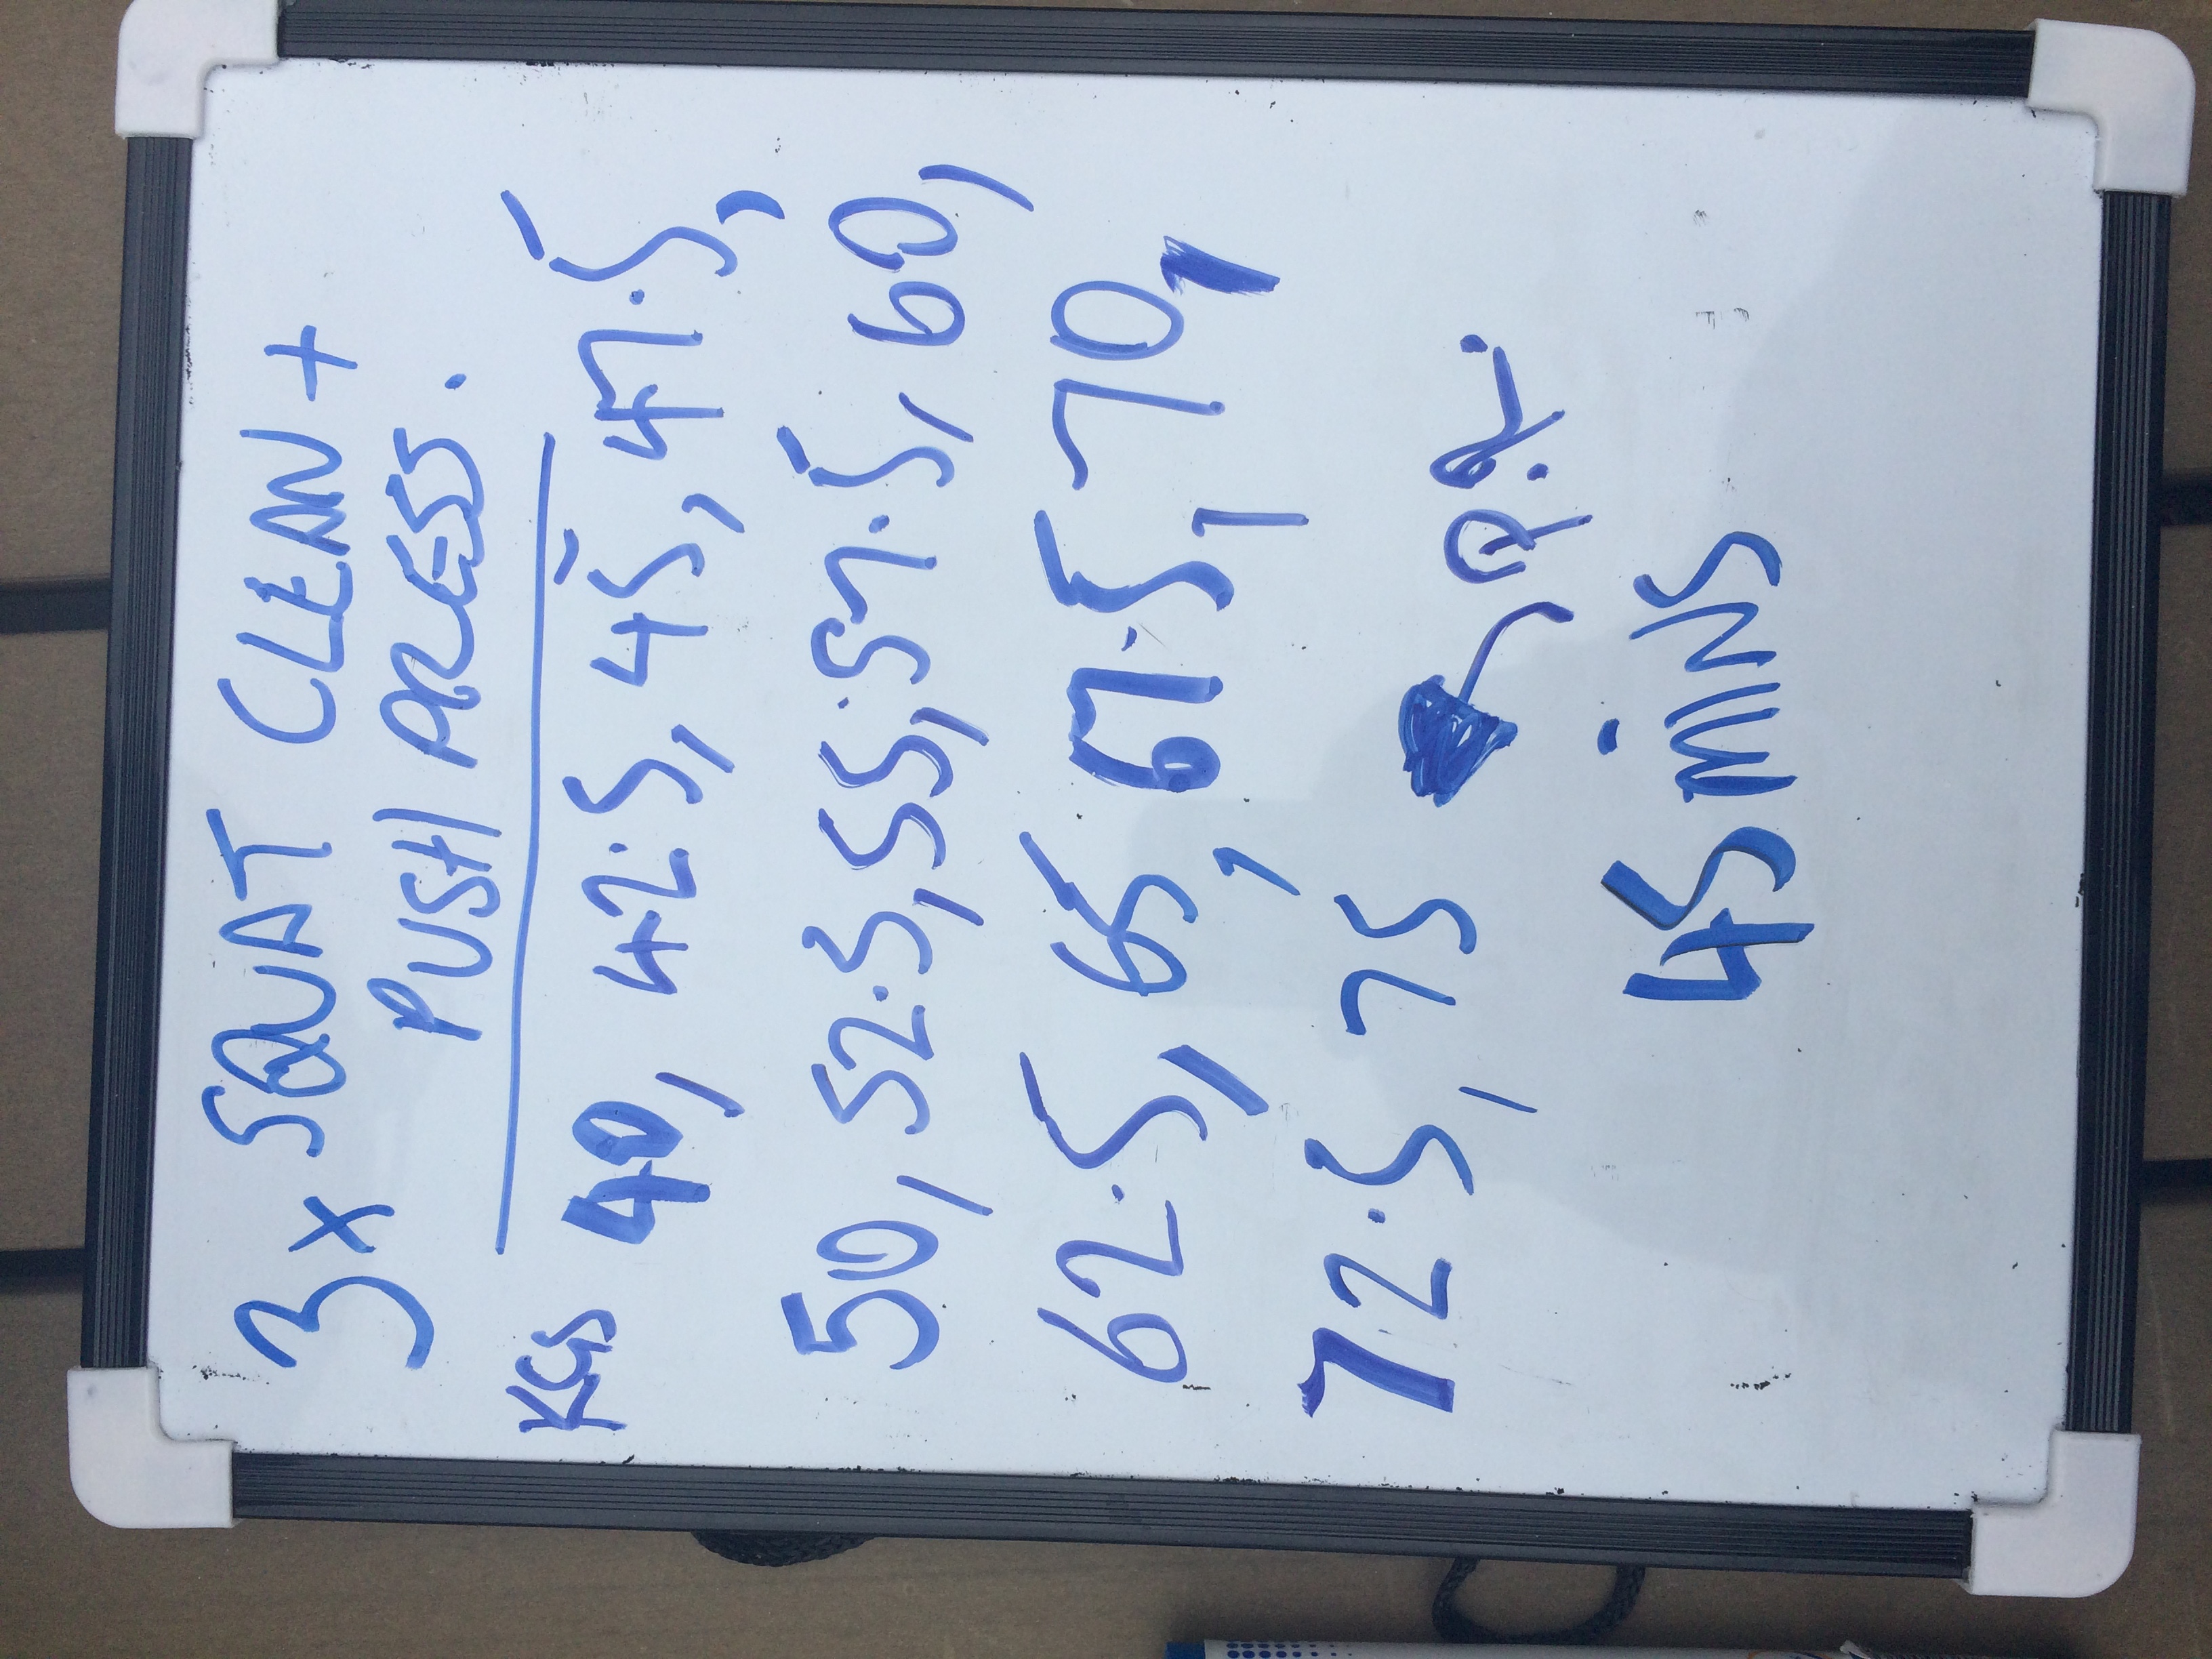 3x SQUAT CLEAN +
PUSH PRESS.
KGS 40, 42.5, 45, 47.5,
50, 52.5, 55, 57.5, 60,
62.5, 65, 67.5, 70,
72.5, 75 P.R.
45 MINS